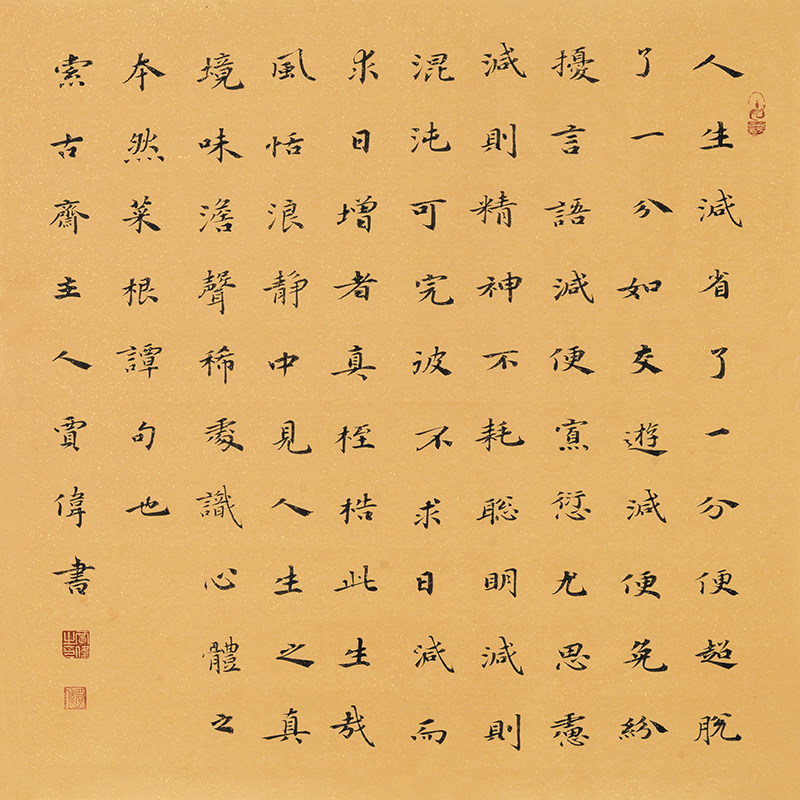 人生減省了一分便超脫
了一分如交遊減便免紛
擾言語減便寡愆尤思慮
減則精神不耗聰明減則
混沌可完彼不求日減而
求日增者真桎梏此生哉
風恬浪靜中見人生之真
境味澹聲稀處識心體之
本然菜根譚句也
索古齋主人賈偉書